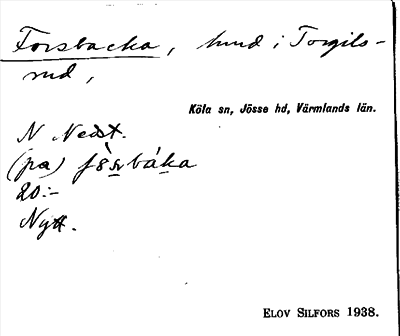 Forsbacka, hmd i Torgils-
rud,
Köla sn, Jösse hd, Värmlands län.
N Nedst.
(pa)
20:-
Nytt.
ELOV SILFORS 1938.